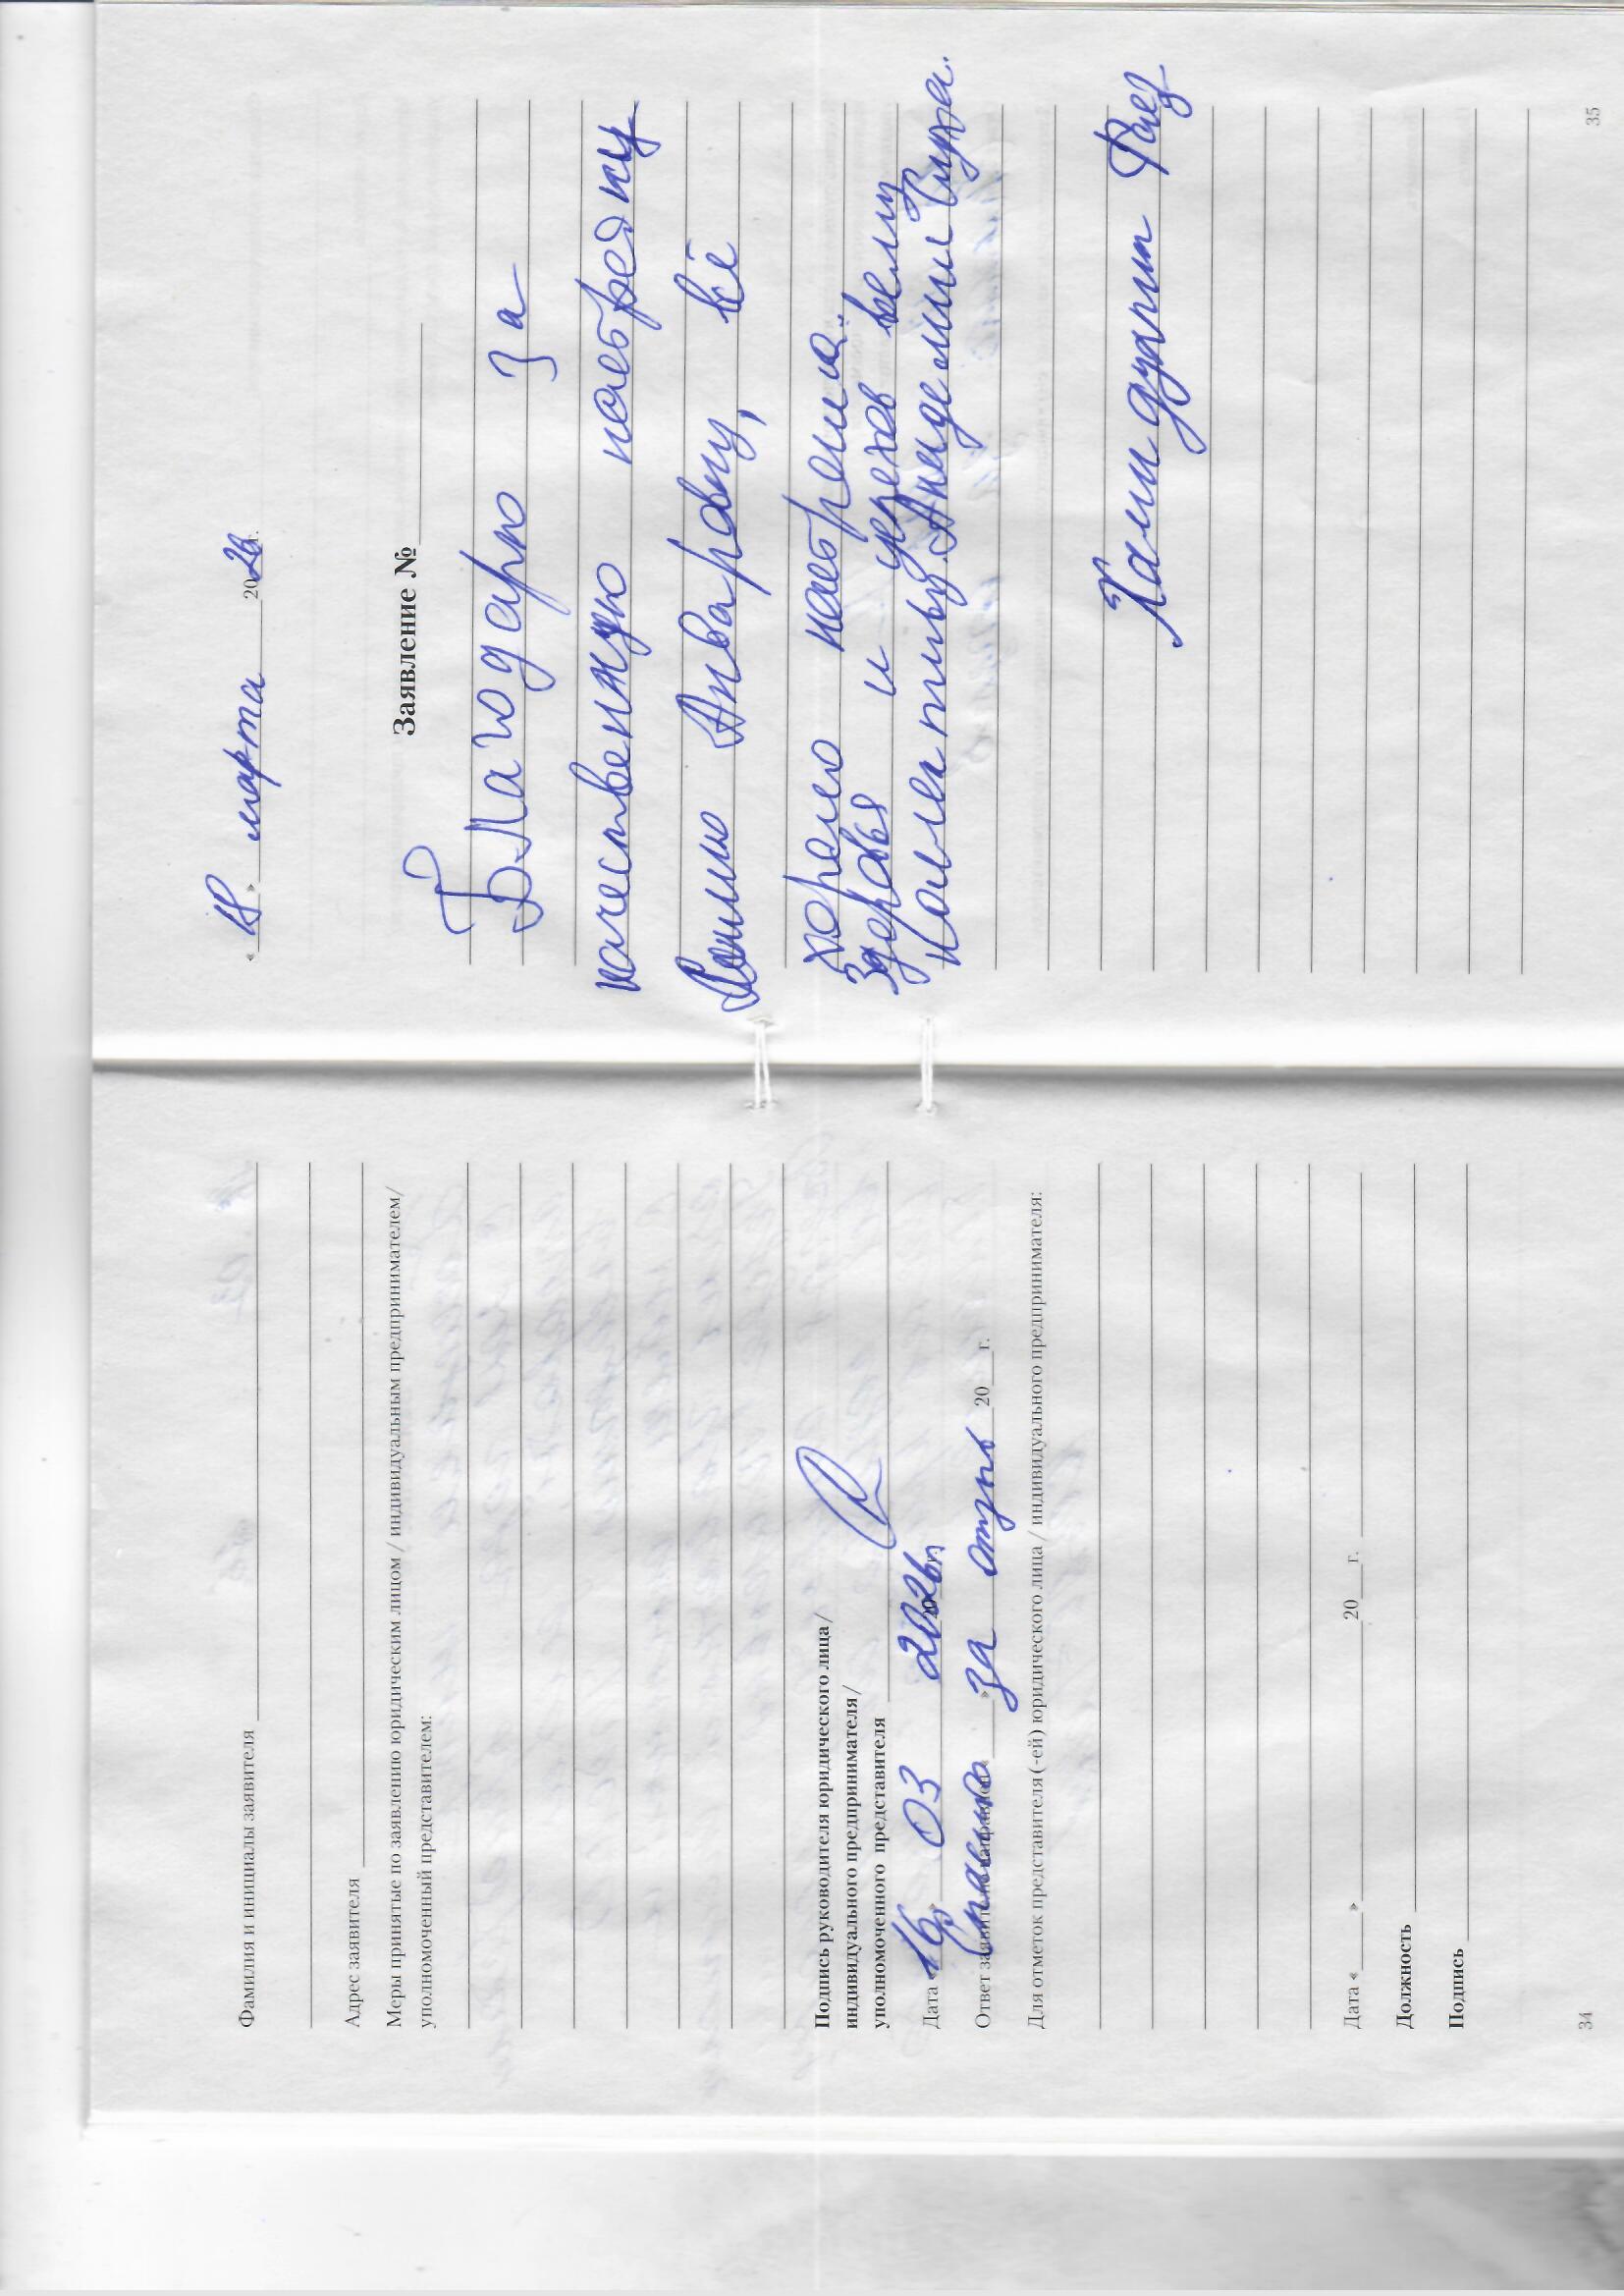 Фамилия и инициалы заявителя
Адрес заявителя
Меры принятые по заявлению юридическим лицом / индивидуальным предпринимателем/
уполномоченный представителем:
Подпись руководителя юридического лица/
индивидуального предпринимателя/
уполномоченного представителя
Дата « 16 » 03 2026г.
Ответ заявителю направлен « » 20 г.
Спасибо за отзыв
Для отметок представителя(-ей) юридического лица / индивидуального предпринимателя:
Дата « » 20 г.
Должность
Подпись
34
« » марта 2026г.
Заявление №
Благодарю за
качественную
Анваровну, всё
хорошо
Здоровья и успехов всему
Коллективу.
35